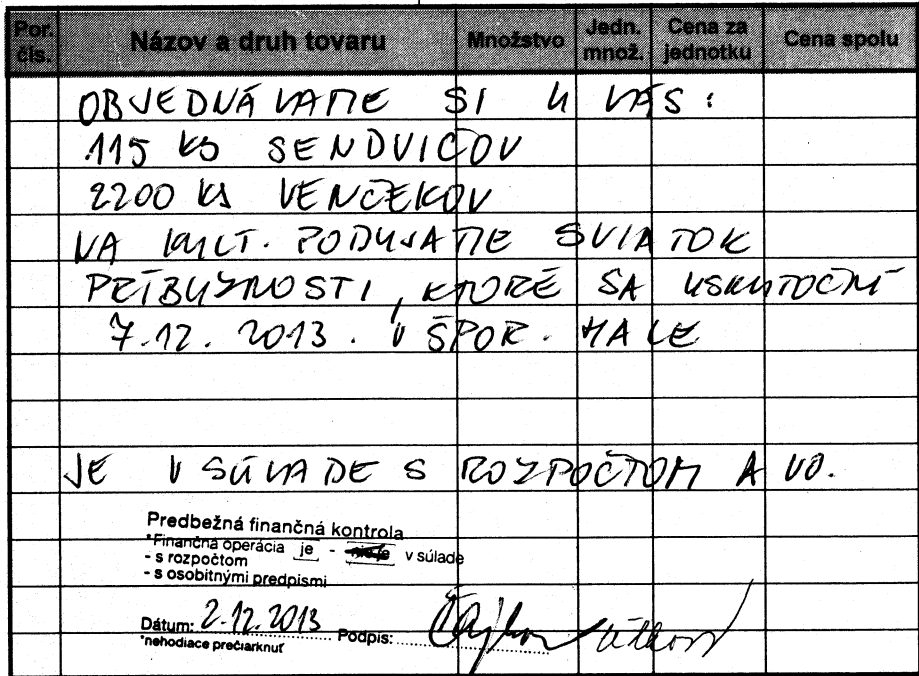 Por. čís. Názov a druh tovaru Množstvo Jedn. množ. Cena za jednotku Cena spolu
OBJEDNÁVAME SI U VÁS:
115 KS SENDVIČOV
2200 KS VENČEKOV
NA KULT. PODUJATIE SVIATOK
PRÍBUZNOSTI, KTORÉ SA USKUTOČNÍ
7.12. 2013. V ŠPOR. HALE
JE V SÚLADE S ROZPOČTOM A VO.
Predbežná finančná kontrola
*Finančná operácia je - nie je v súlade
- s rozpočtom
- s osobitnými predpismi
Dátum: 2.12.2013 Podpis:
*nehodiace prečiarknuť